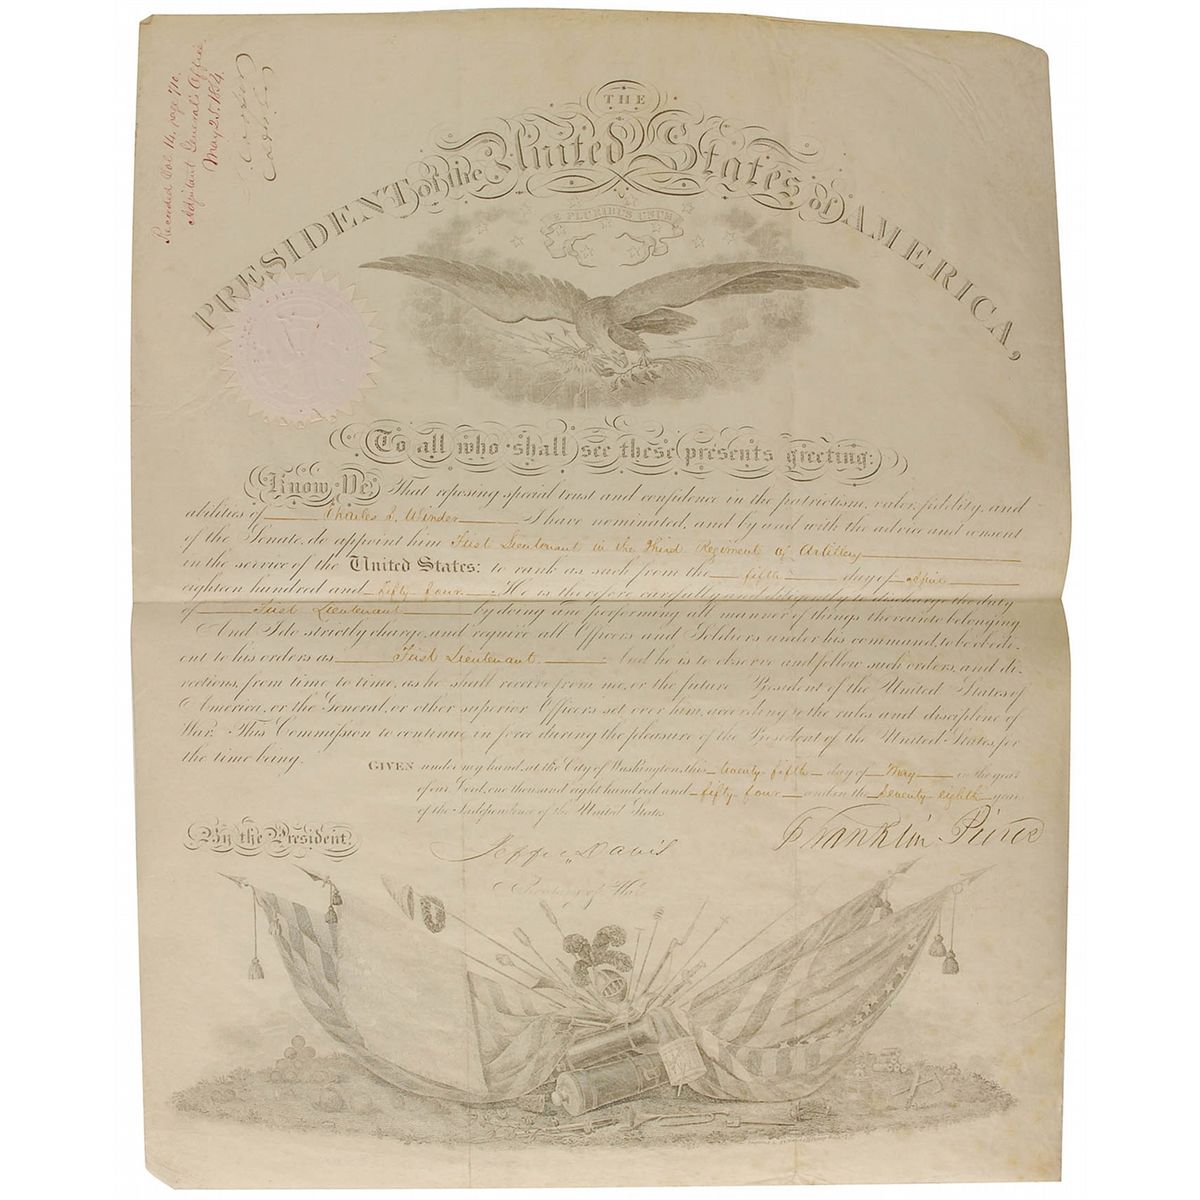 Recorded Vol 14, page 710.
Adjutant General's Office
May 25. 1854.
THE
PRESIDENT of the United States of AMERICA,
E PLURIBUS UNUM
To all who shall see these presents greeting:
Know Ye, That reposing special trust and confidence in the patriotism, valor, fidelity, and
abilities of Charles S. Winder I have nominated, and by and with the advice and consent
of the Senate, do appoint him First Lieutenant in the Third Regiment of Artillery
in the service of the United States: to rank as such from the fifth day of April
eighteen hundred and fifty four. He is therefore carefully and diligently to discharge the duty
of First Lieutenant by doing and performing all manner of things thereunto belonging.
And I do strictly charge, and require all Officers and Soldiers under his command, to be obedi-
ent to his orders as First Lieutenant. And he is to observe and follow such orders, and di-
rections, from time to time, as he shall receive from me, or the future President of the United States of
America, or the General, or other superior Officers set over him, according to the rules and discipline of
War. This Commission to continue in force during the pleasure of the President of the United States, for
the time being.
GIVEN under my hand, at the City of Washington, this twenty fifth day of May in the year
of our Lord, one thousand eight hundred and fifty four and in the seventy eighth year
of the Independence of the United States.
By the President.
Franklin Pierce
Jeffn. Davis
Secretary of War